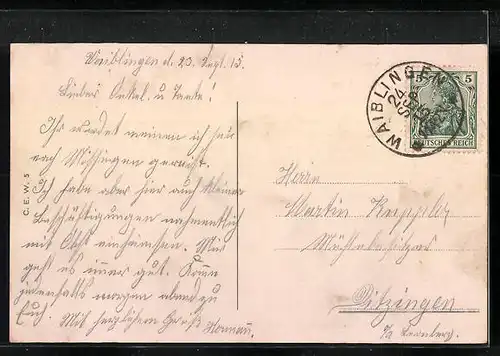 Waiblingen d. 23. Sept. 15.
Lieber Onkel u. Tante!
Ihr werdet meinen ich sei
nach gereist.
Ich habe aber hier auch kleine
Beschäftigungen namentlich
mit Obst einheimsen. Mir
geht es immer gut. Komme
jedenfalls morgen abend zu
Euch. Mit herzlichem Gruß
C. E. W. S
WAIBLINGEN
24
SEP
5 5
DEUTSCHES REICH
Herrn
Martin
Mühlebesitzer
Ditzingen
o/a Leonberg.